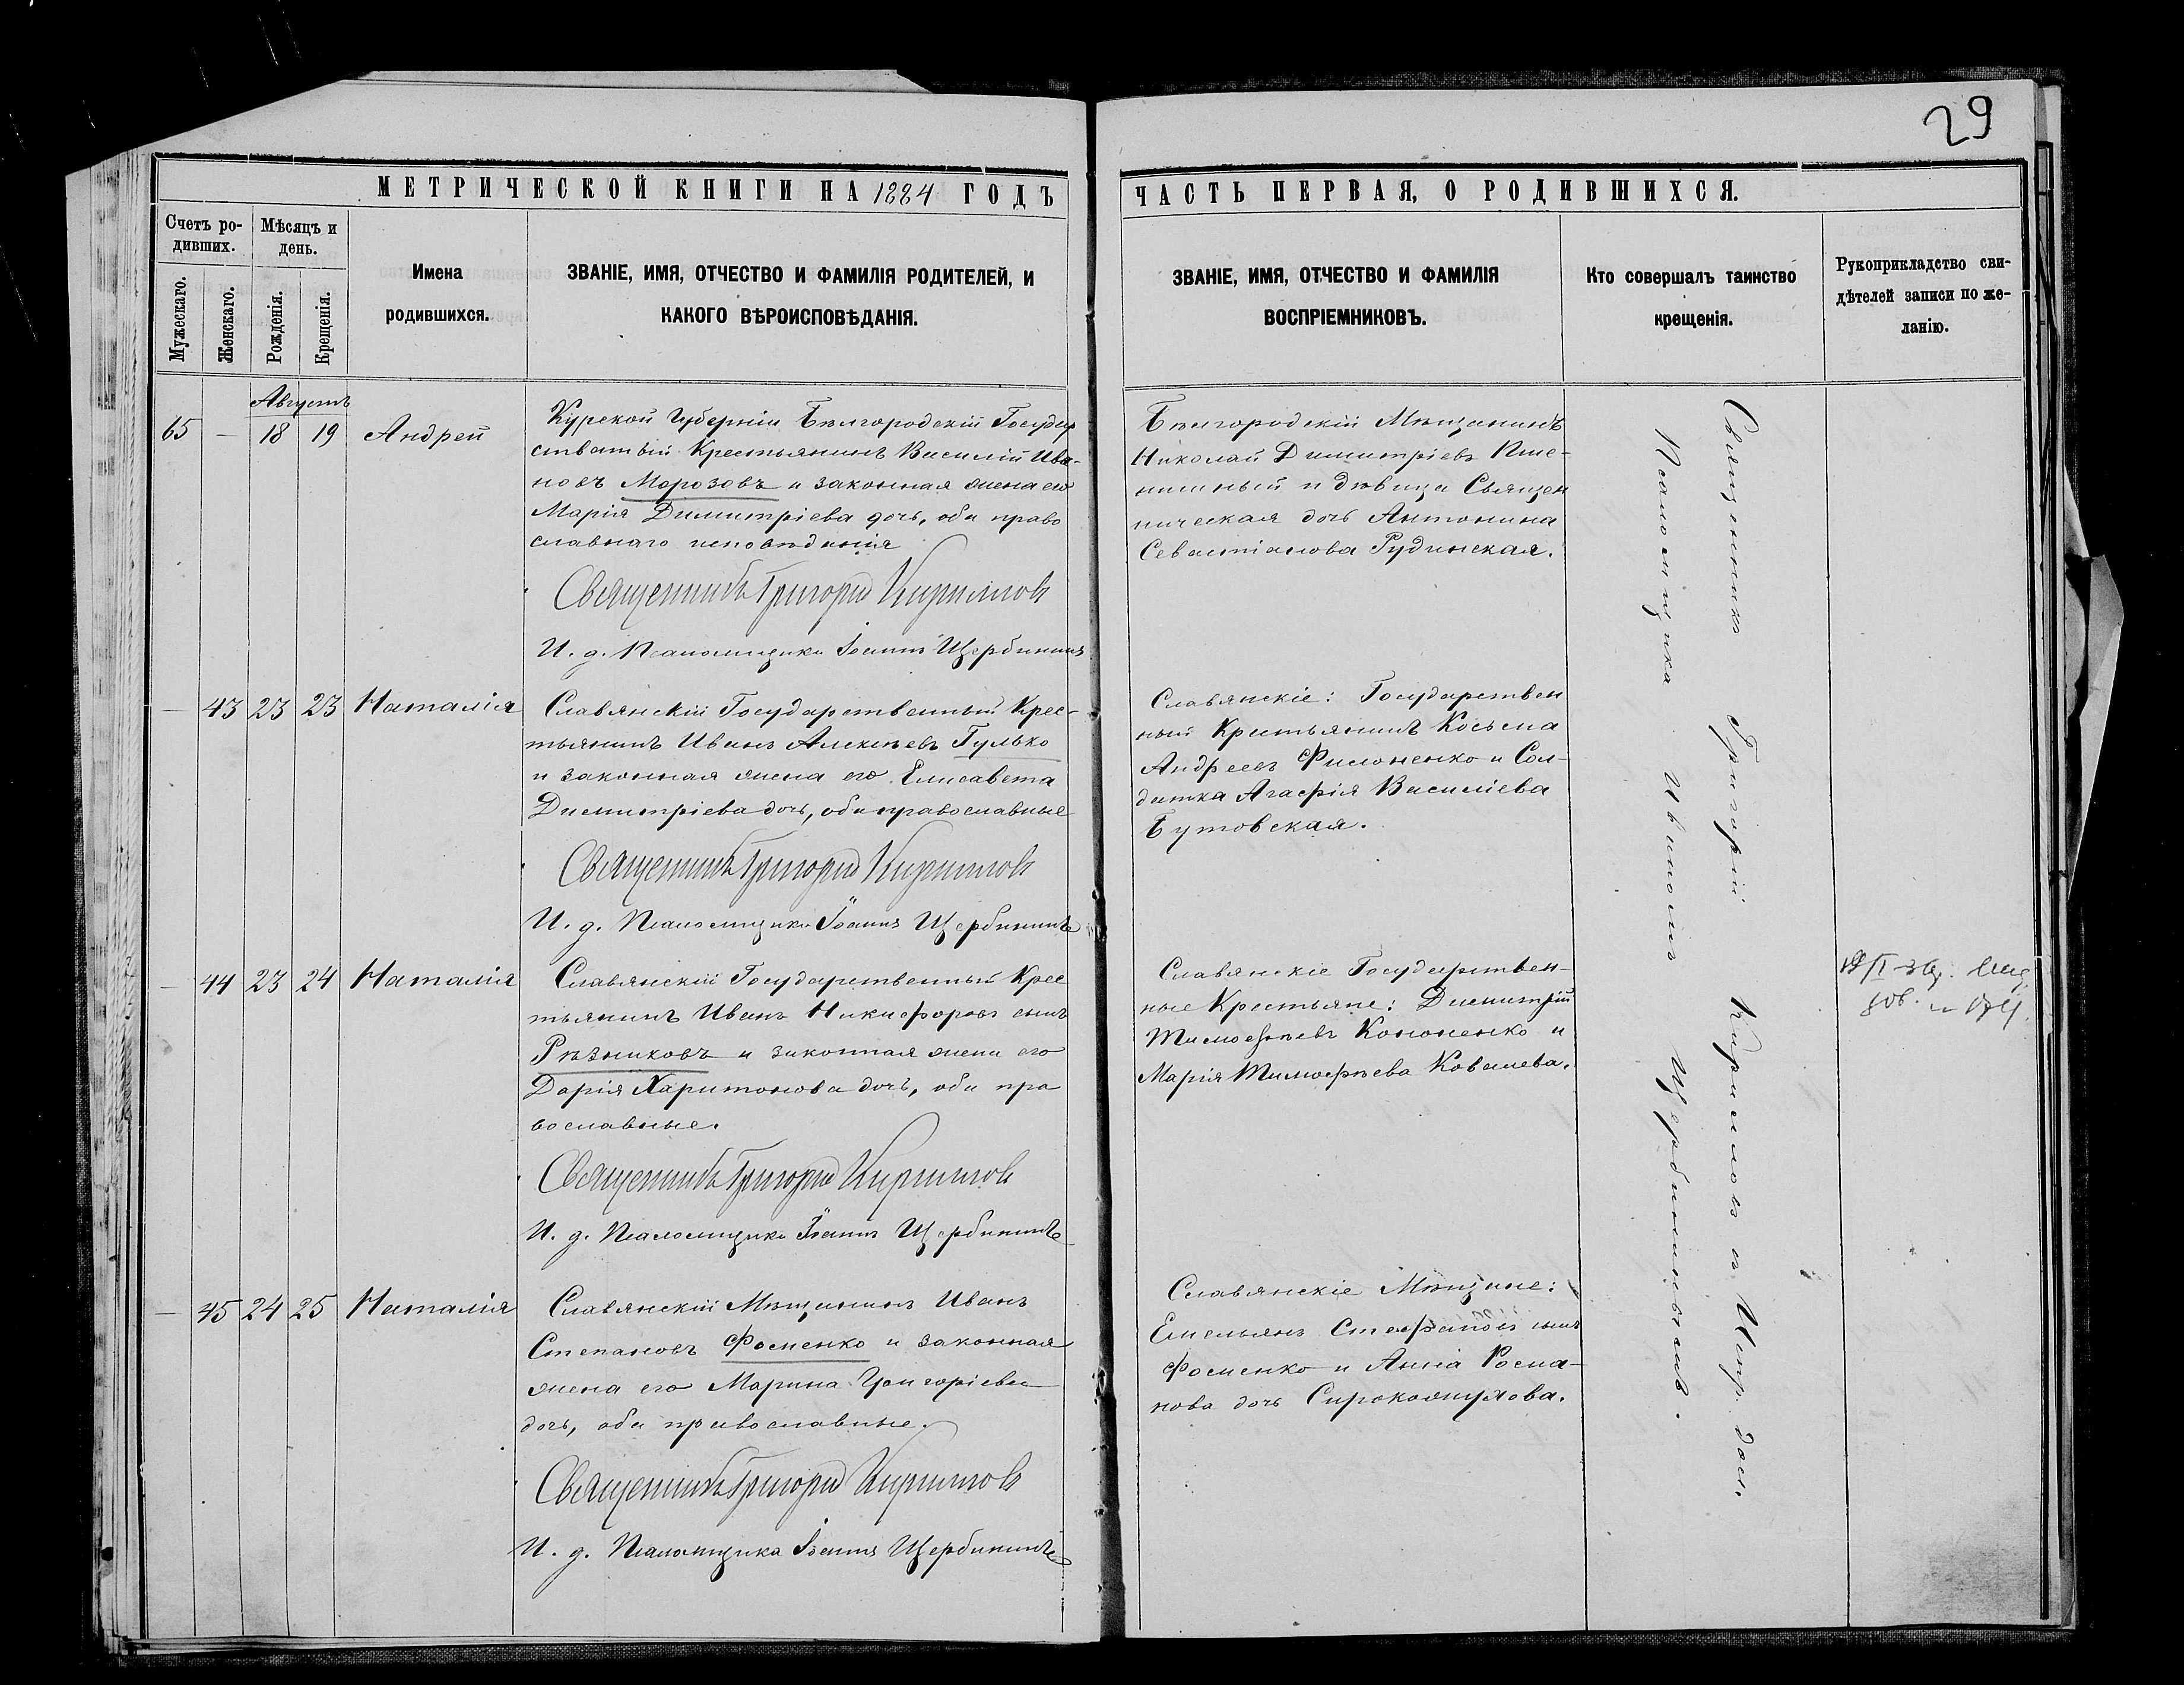 29
МЕТРИЧЕСКОЙ КНИГИ НА 1884 ГОДЪ
ЧАСТЬ ПЕРВАЯ, О РОДИВШИХСЯ.
Счетъ ро-
дивших.
Мужескаго.
Женскаго.
Мѣсяцъ и
день.
Рожденія.
Крещенія.
Имена
родившихся.
ЗВАНІЕ, ИМЯ, ОТЧЕСТВО И ФАМИЛІЯ РОДИТЕЛЕЙ, И
КАКОГО ВѢРОИСПОВѢДАНІЯ.
ЗВАНІЕ, ИМЯ, ОТЧЕСТВО И ФАМИЛІЯ
ВОСПРІЕМНИКОВЪ.
Кто совершалъ таинство
крещенія.
Рукоприкладство сви-
дѣтелей записи по же-
ланію.
Августъ
65 — 18 19 Андрей
Курской Губерніи Бѣлгородскій Государ
ственный Крестьянинъ Василій Ива-
новъ Морозовъ и законная жена его
Марія Димитріева дочь, оба право
славнаго исповѣданія
Священникъ Григорій Кириллов
И. д. Псаломщика Іоаннъ Щербининъ
Бѣлгородскій Мѣщанинъ
Николай Димитріевъ Пше-
ничный и дѣвица Священ
ническая дочь Антонина
Севастіанова Рудинская.
— 43 23 23 Наталія
Славянскій Государственный Крес-
тьянинъ Иванъ Алексѣевъ Гулько
и законная жена его Елисавета
Димитріева дочь, оба православные
Священникъ Григорій Кириллов
И. д. Псаломщика Іоаннъ Щербининъ
Славянскіе: Государствен
ный Крестьянинъ Косьма
Андреевъ Филоненко и Сол-
датка Агафія Василіева
Бутовская.
— 44 23 24 Наталія
Славянскій Государственный Крес
тьянинъ Иванъ Никифоровъ сынъ
Рѣзниковъ и законная жена его
Дарія Харитонова дочь, оба пра
вославные.
Священникъ Григорій Кириллов
И. д. Псаломщика Іоаннъ Щербининъ
Славянскіе Государствен-
ные Крестьяне: Димитрій
Тимофѣевъ Кононенко и
Марія Тимофѣева Ковалева.
— 45 24 25 Наталія
Славянскій Мѣщанинъ Иванъ
Степановъ Фоменко и законная
жена его Марина Григоріева
дочь, оба православные.
Священникъ Григорій Кириллов
И. д. Псаломщика Іоаннъ Щербининъ
Славянскіе Мѣщане:
Емельянъ Стефановъ сынъ
Фоменко и Анна Рома-
нова дочь Сироконулова.
Священникъ Григорій Кирилловъ и Испр. дол.
Псаломщика Щербининъ.